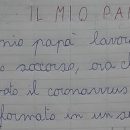 IL MIO PA
mio papà lavor
soccorso, ora c
il coronavirus
formato in un s